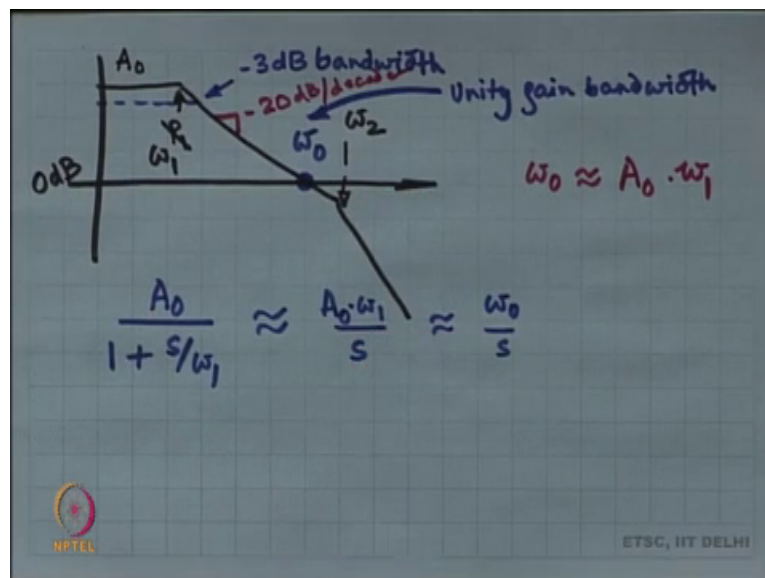 A₀
-3dB bandwidth
-20 dB/decade
Unity gain bandwidth
ω₂
ω₀
ω₁
0dB
ω₀ ≈ A₀ · ω₁
A₀ / (1 + s/ω₁) ≈ A₀·ω₁ / s ≈ ω₀ / s
NPTEL
ETSC, IIT DELHI